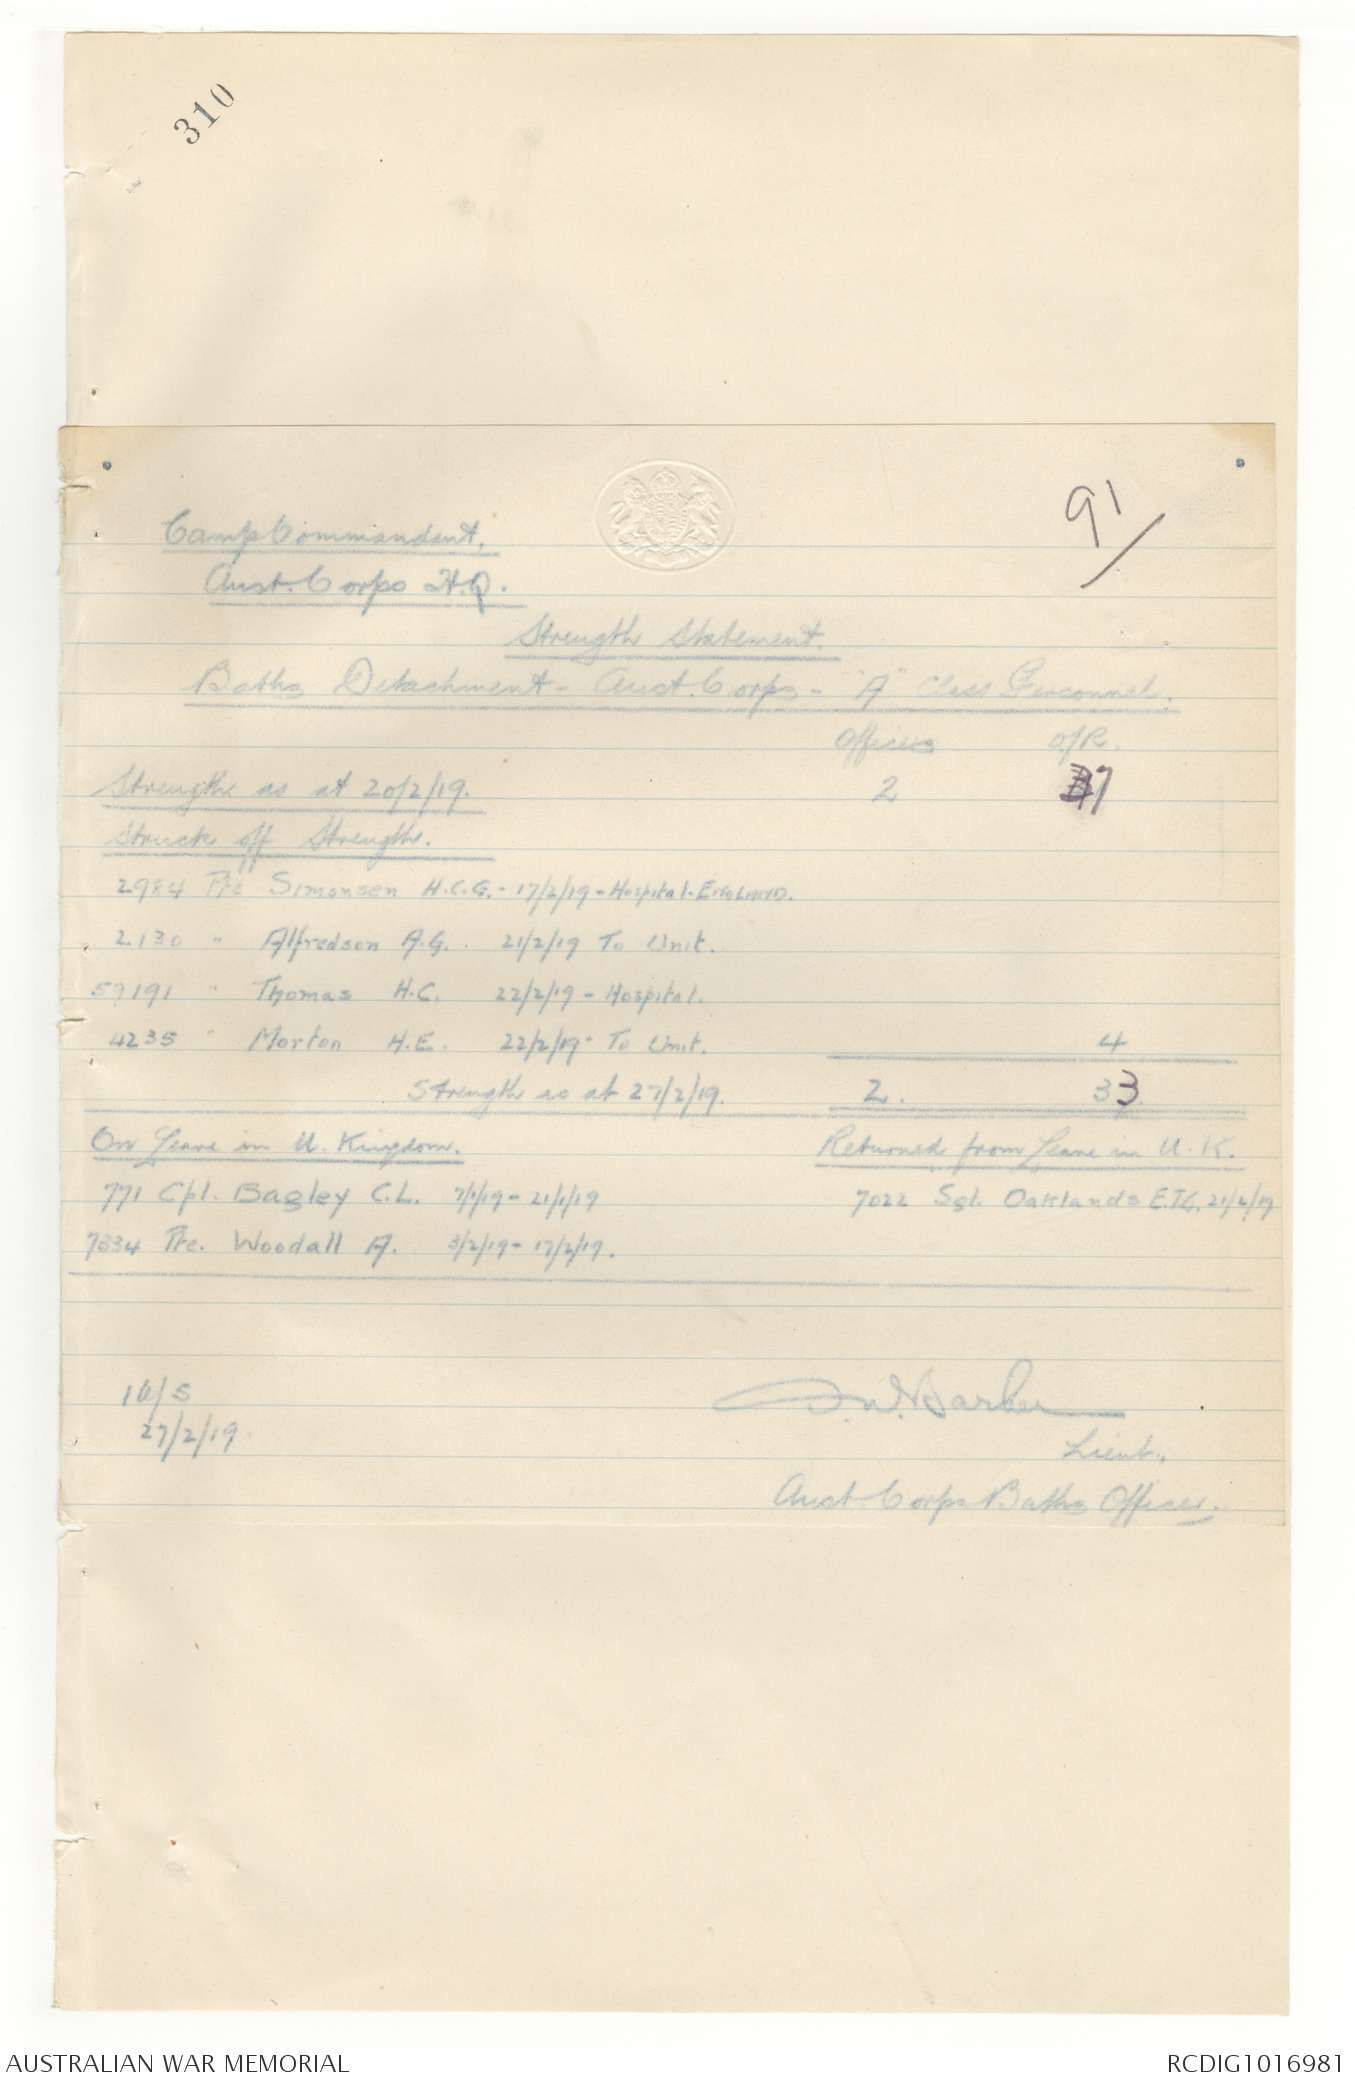 310
91/
Camp Commandant,
Aust. Corps H.Q.
Strength Statement.
Baths Detachment - Aust. Corps - "A" Class Personnel.
Officers O/R.
Strength as at 20/2/19. 2 37
Struck off Strength.
2984 Pte Simonsen H.C.G. - 17/2/19 - Hospital - ENGLAND.
2130 " Alfredson A.G. 21/2/19 To Unit.
59191 " Thomas H.C. 22/2/19 - Hospital.
4235 " Morton H.E. 22/2/19 - To Unit. 4
Strength as at 27/2/19. 2. 33
On Leave in U. Kingdom. Returned from Leave in U.K.
771 Cpl. Bagley C.L. 7/1/19 - 21/1/19 7022 Sgt. Oaklands 21/2/19
7334 Pte. Woodall A. 3/2/19 - 17/2/19.
27/2/19.
W. Barber
Lieut.,
Aust. Corps Baths Officer.
AUSTRALIAN WAR MEMORIAL RCDIG1016981